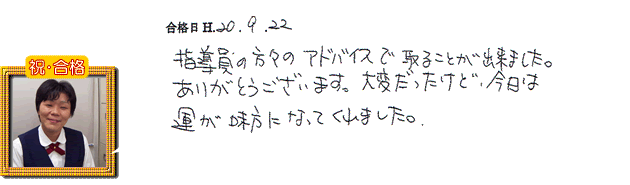 合格日 H.20.9.22
指導員の方々のアドバイスで取ることが出来ました。
ありがとうございます。大変だったけど、今日は
運が味方になってくれました。
祝・合格